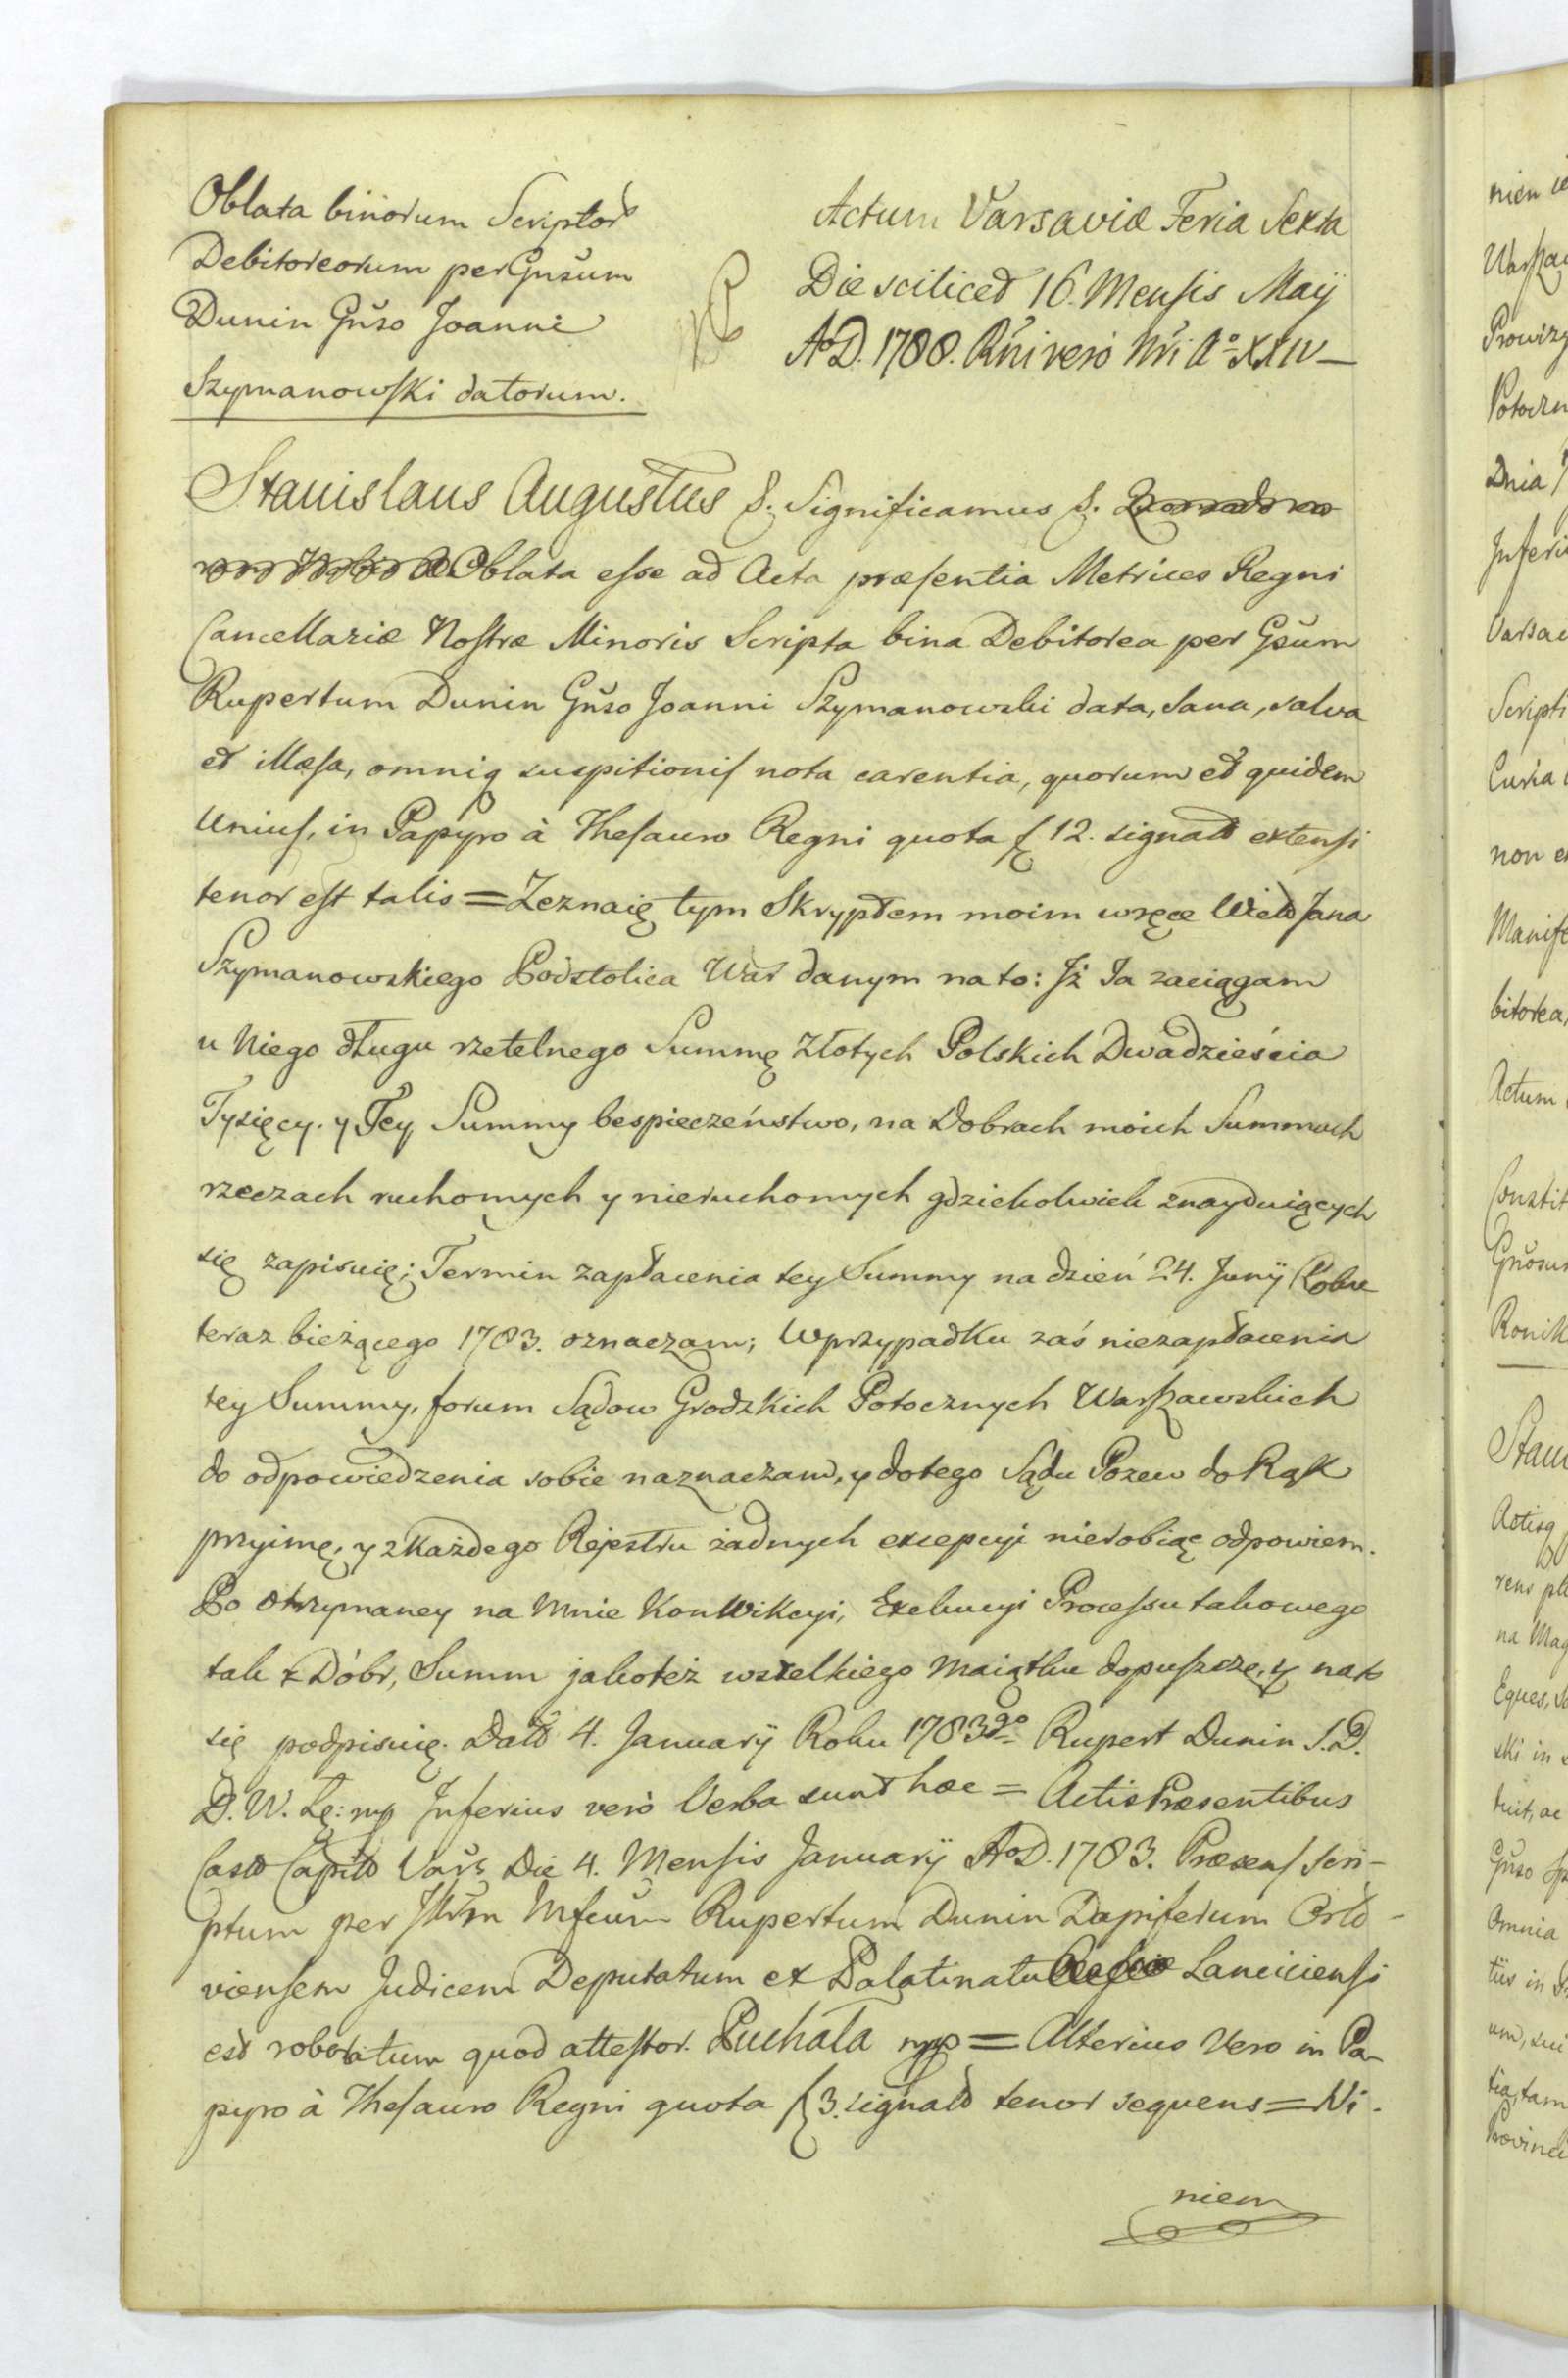 Oblata binorum Scriptor
Debitoreorum per Gnsum
Dunin Gnso Joanni
Szymanowski datorum.
Actum Varsaviæ Feria Sexta
Die scilicet 16. Mensis Maij
AoD. 1788. Rni vero Nri Ao XXIV
Stanislaus Augustus &. Significamus &.
Oblata esse ad Acta præsentia Metrices Regni
Cancellariæ Nostræ Minoris Scripta bina Debitorea per Gsum
Rupertum Dunin Gnso Joanni Szymanowski data, sana, salva
et illæsa, omniq suspitionis nota carentia, quorum et quidem
Unius, in Papyro à Thesauro Regni quota f 12. signat extensi
tenor est talis = Zeznaię tym Skryptem moim w ręce Wielo Jana
Szymanowskiego Podstolica War danym na to: Jż Ja zaciągam
u Niego długu rzetelnego Summę Złotych Polskich Dwadzieścia
Tysięcy. y Tey Summy bespieczeństwo, na Dobrach moich Summach
rzeczach ruchomych y nieruchomych gdziekolwiek znayduiących
się zapisuię; Termin zapłacenia tey Summy na dzień 24. Junij Roku
teraz bieżącego 1783. oznaczam; W przypadku zaś niezapłacenia
tey Summy, forum Sądow Grodzkich Potocznych Warszawskich
do odpowiedzenia sobie naznaczam, y do tego Sądu Pozew do Rąk
przyimę, y z każdego Rejestru żadnych excepcyi nierobiąc odpowiem.
Po otrzymaney na Mnie Konwikcyi, Exekucyi Processu takowego
tak z Dóbr, Summ jakoteż wszelkiego Maiątku dopuszczę, y nato
się podpisuię. Dato 4. Januarij Roku 1783go Rupert Dunin S.D.
D.W. Łę: mp Inferius verò Verba sunt hæc = Actis Præsentibus
Cast Capit Vars Die 4. Mensis Januarij AoD. 1783. Præsens scri-
ptum per Mfcum Rupertum Dunin Dapiferum Orło-
viensem Judicem Deputatum ex Palatinatu Lanciciensi
est roboratum quod attestor. Puchała mp = Alterius Vero in Pa-
pyro à Thesauro Regni quota f 3. signato tenor sequens = Ni-
niem